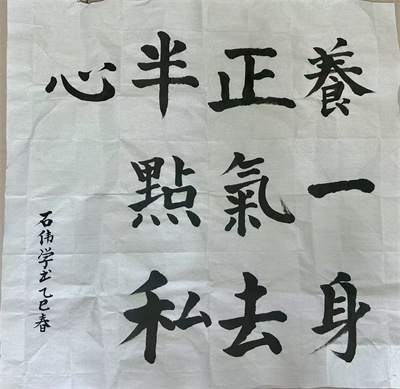 養一身
正氣去
半點私
心
石伟学书乙巳春